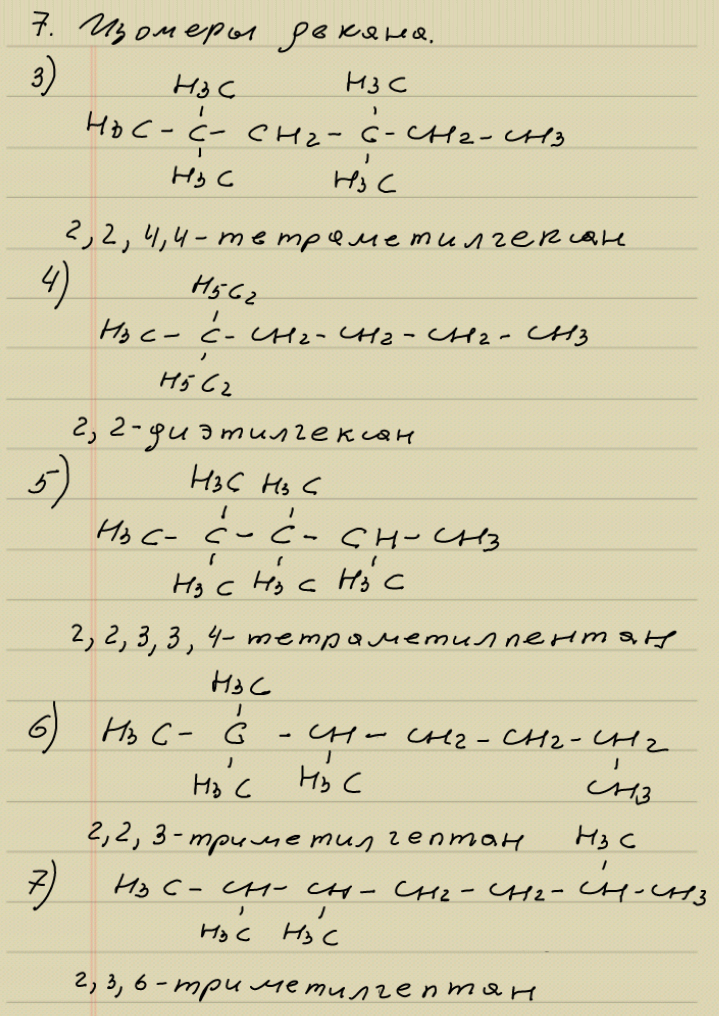 7. Изомеры декана.
3)
H3C H3C
H3C - C - CH2 - C - CH2 - CH3
H3C H3C
2,2,4,4-тетраметилгексан
4)
H5C2
H3C - C - CH2 - CH2 - CH2 - CH3
H5C2
2,2-диэтилгексан
5)
H3C H3C
H3C - C - C - CH - CH3
H3C H3C H3C
2,2,3,3,4-тетраметилпентан
H3C
6) H3C - C - CH - CH2 - CH2 - CH2
H3C H3C CH3
2,2,3-триметилгептан
H3C
7) H3C - CH - CH - CH2 - CH2 - CH - CH3
H3C H3C
2,3,6-триметилгептан